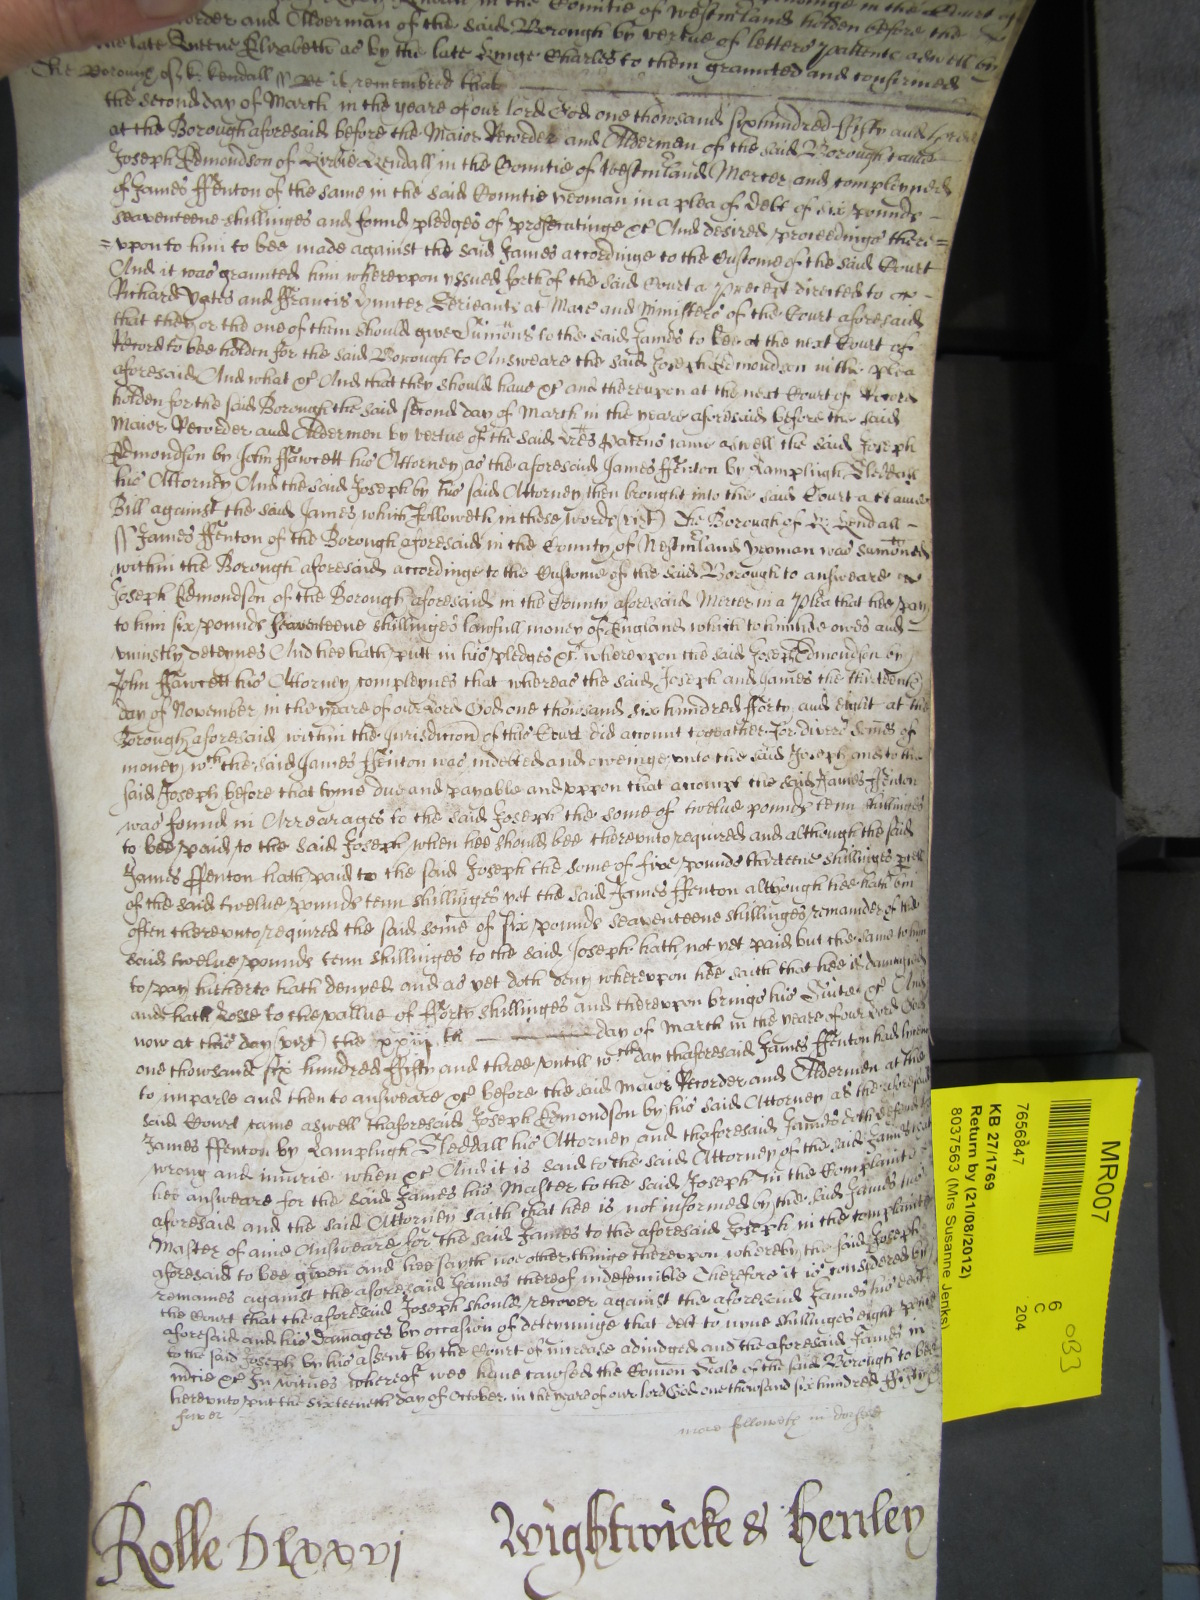 in the Countie of Westmland holden before the
Recorder and Alderman of the said Borough by vertue of letters patente aswell by
the late Queene Elizabeth as by the late Kinge Charles to them graunted and confirmed
The Borough of K: Kendall ss Be it remembred that
the second day of March in the yeare of our lord God one thousand sixhundred ffifty and
at the Borough aforesaid before the Maior Recorder and Aldermen of the said Borough came
Joseph Edmondson of Kirbie Kendall in the Countie of Westmland Mercer and compleyned
of James ffenton of the same in the said Countie yeoman in a plea of Debt of six pounds
seaventeene shillinges and found pledges of prosecutinge &c And desired proceedings there=
=vppon to him to bee made against the said James accordinge to the Custome of the said Court
And it was graunted him wherevpon yssued forth of the said Court a precept directed to
Richard Yates and ffrancis Hunter Serieants at Mace and Ministers of the Court aforesaid
that they or the one of them should give Sumons to the said James to bee at the next Court of
Record to bee holden for the said Borough to Answeare the said Joseph Edmondson in the plea
aforesaid And what &c And that they should have &c and therevpon at the next Court of Record
holden for the said Borough the said second day of March in the yeare aforesaid before the said
Maior Recorder and Aldermen by vertue of the said Lres Patens came aswell the said Joseph
Edmondson by John ffawcett his Attorney as the aforesaid James ffenton by Lamplugh Sleddall
his Attorney And the said Joseph by his said Attorney then brought into the said Court a
Bill against the said James which followeth in these words (vizt) The Borough of K: Kendall
ss James ffenton of the Borough aforesaid in the County of Westmland yeoman was sumoned
within the Borough aforesaid accordinge to the Custome of the said Borough to answeare
Joseph Edmondson of the Borough aforesaid in the County aforesaid Mercer in a Plea that hee pay
to him six pounds seaventeene shillinges lawfull money of England which to him hee owes and
vniustly deteynes And hee hath putt in his pledges &c wherevpon the said Joseph Edmondson by
John ffawcett his Attorney compleynes that whereas the said Joseph and James the thirteenth
day of November in the yeare of our Lord God one thousand six hundred fforty and eight at the
Borough aforesaid within the Jurisdiccon of this Court did account togeather for divers somes of
money wch the said James ffenton was indebted and oweinge vnto the said Joseph and to the
said Joseph before that tyme due and payable and vppon that accompt the said James ffenton
was found in Arrearages to the said Joseph the some of twelve pounds tenn shillinges
to bee paid to the said Joseph when hee should bee therevnto required and although the said
James ffenton hath paid to the said Joseph the some of five pounds thirteene shillinges pcell
of the said twelve pounds tenn shillinges yet the said James ffenton although hee hath bin
often therevnto required the said some of six pounds seaventeene shillinges remainder of the
said twelve pounds tenn shillinges to the said Joseph hath not yet paid but the same to him
to pay hitherto hath denyed and as yet doth deny wherevpon hee saith that hee is damnyfied
and hath Losse to the vallue of fforty shillinges and therevpon brings his Suite &c And
now at this day (vizt) the xxiijth day of March in the yeare of our Lord God
one thousand six hundred ffifty and three vntill wch day thaforesaid James ffenton had lycence
to imparle and then to answeare &c before the said Maior Recorder and Aldermen at the
said Court came aswell thaforesaid Joseph Edmondson by his said Attorney as the aforesaid
James ffenton by Lamplugh Sleddall his Attorney and thaforesaid James doth defend the
wrong and iniurie when &c And it is said to the said Attorney of the said James that
hee answeare for the said James his Master to the said Joseph in the Complaint
aforesaid and the said Attorney saith that hee is not informed by the said James his
Master of anie Answeare for the said James to the aforesaid Joseph in the complainte
aforesaid to bee given and hee sayth noe other thinge therevpon whereby the said Joseph
remaines against the aforesaid James thereof indefensible Therefore it is considered by
the Court that the aforesaid Joseph should recover against the aforesaid James his debt
aforesaid and his Damages by occasion of deteyninge that debt to nyne shillinges eight pence
to the said Joseph by his assent by the Court of increase adiudged and the aforesaid James in
mcie &c In witnes whereof wee have cawsed the Comon Seale of the said Borough to bee
herevnto put the sixteenth day of October in the yeare of our lord God one thousand six hundred ffifty
fower
more followeth in dorseed
Rolle Dlxxvi Wightwicke & Henley
MR007
7656847
KB 27/1769
Return by (21/08/2012)
8037563 (Mrs Susanne Jenks)
6
C
204
033